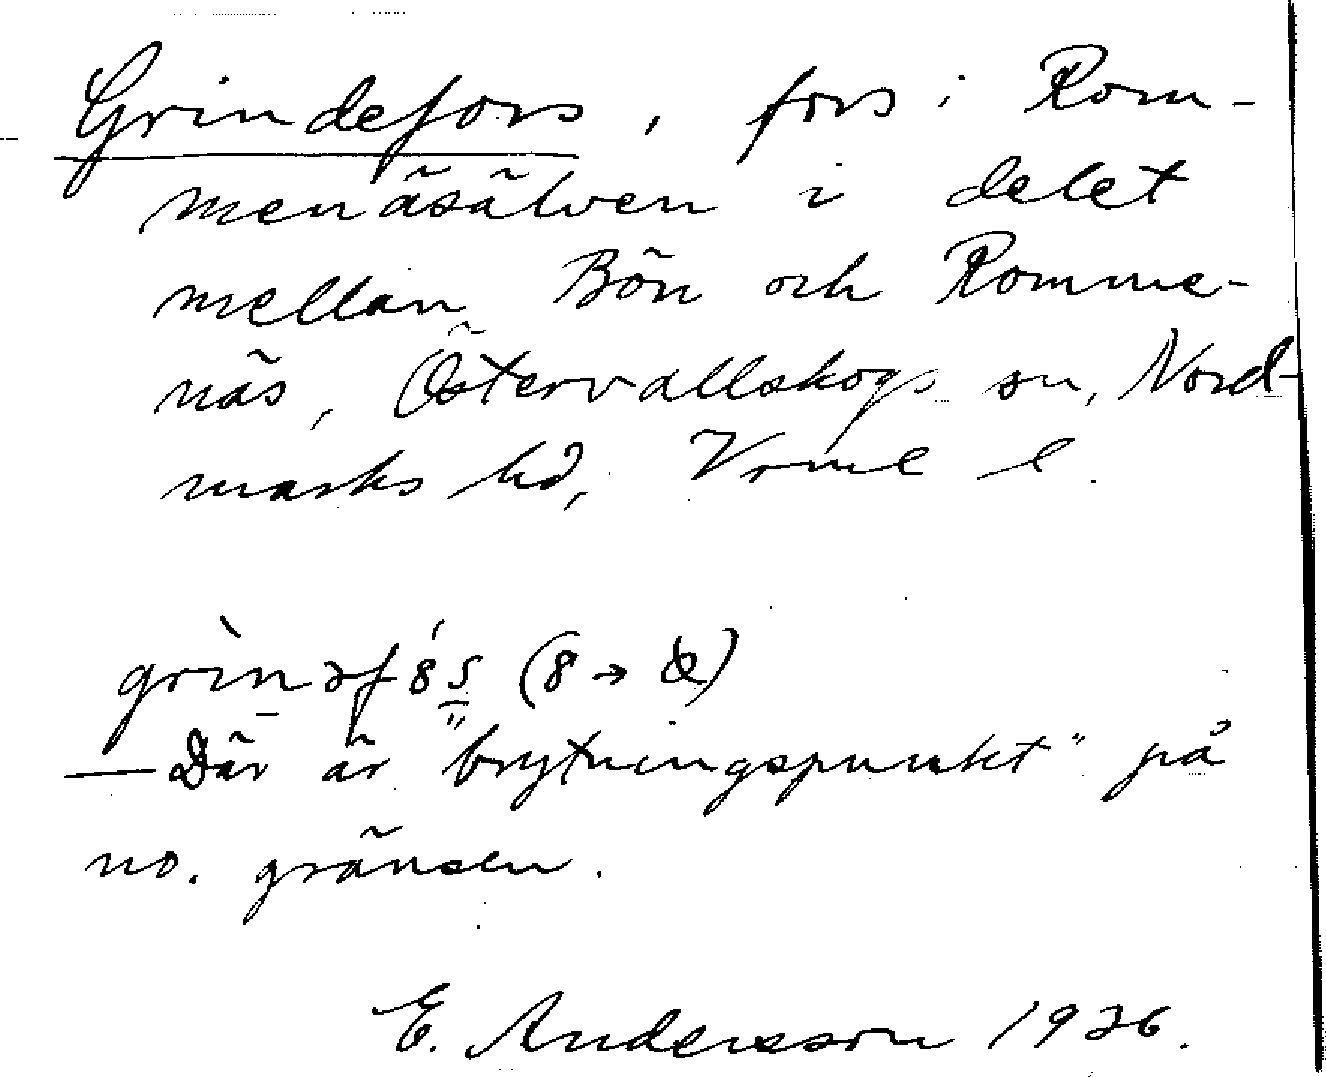 Grindefors, fors i Rom-
menäsälven i delet
mellan Bön och Romme-
näs, Östervallskogs sn, Nord-
marks hd, Vrml l.
grìnəf8́s (8 → )
— Där är "brytningspunkt" på
no. gränsen.
E. Andersson 1936.